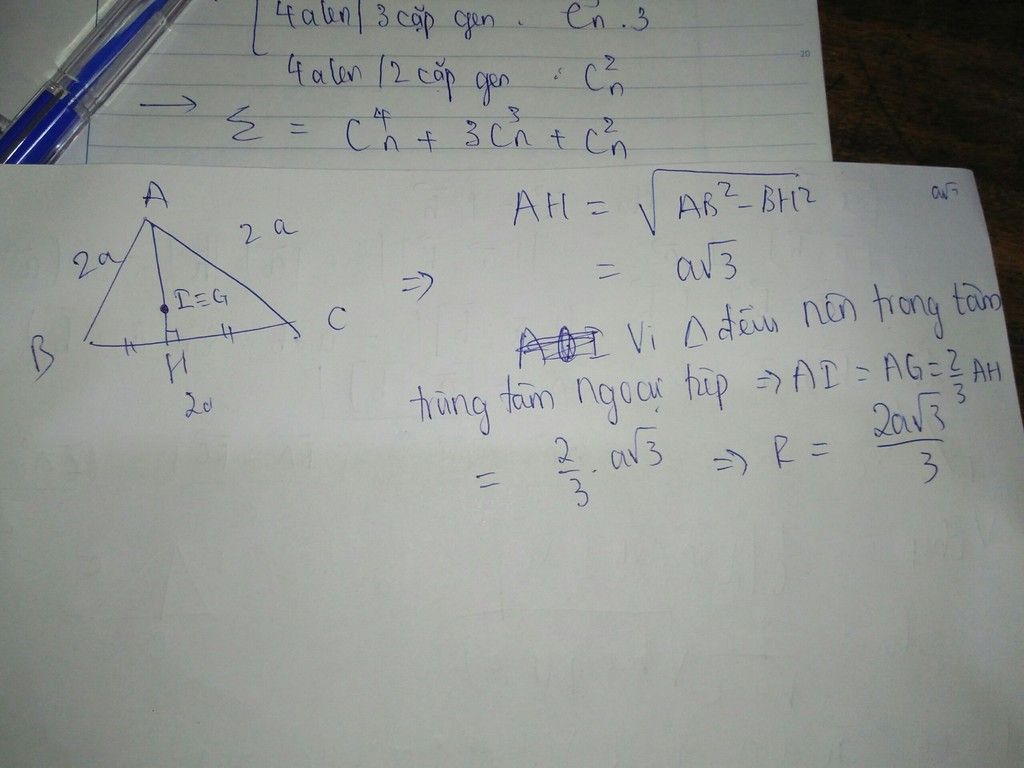 4alen/3 cặp gen . Cn . 3
4alen/2 cặp gen : C²n
→ Σ = C⁴n + 3C³n + C²n
A
2a
2a
I≡G
B
C
H
AH = √AB² - BH²
⇒ = a√3
Vì Δ đều nên trong tâm
trùng tâm ngoại tiếp ⇒ AI = AG = 2/3 AH
= 2/3 . a√3 ⇒ R = 2a√3/3